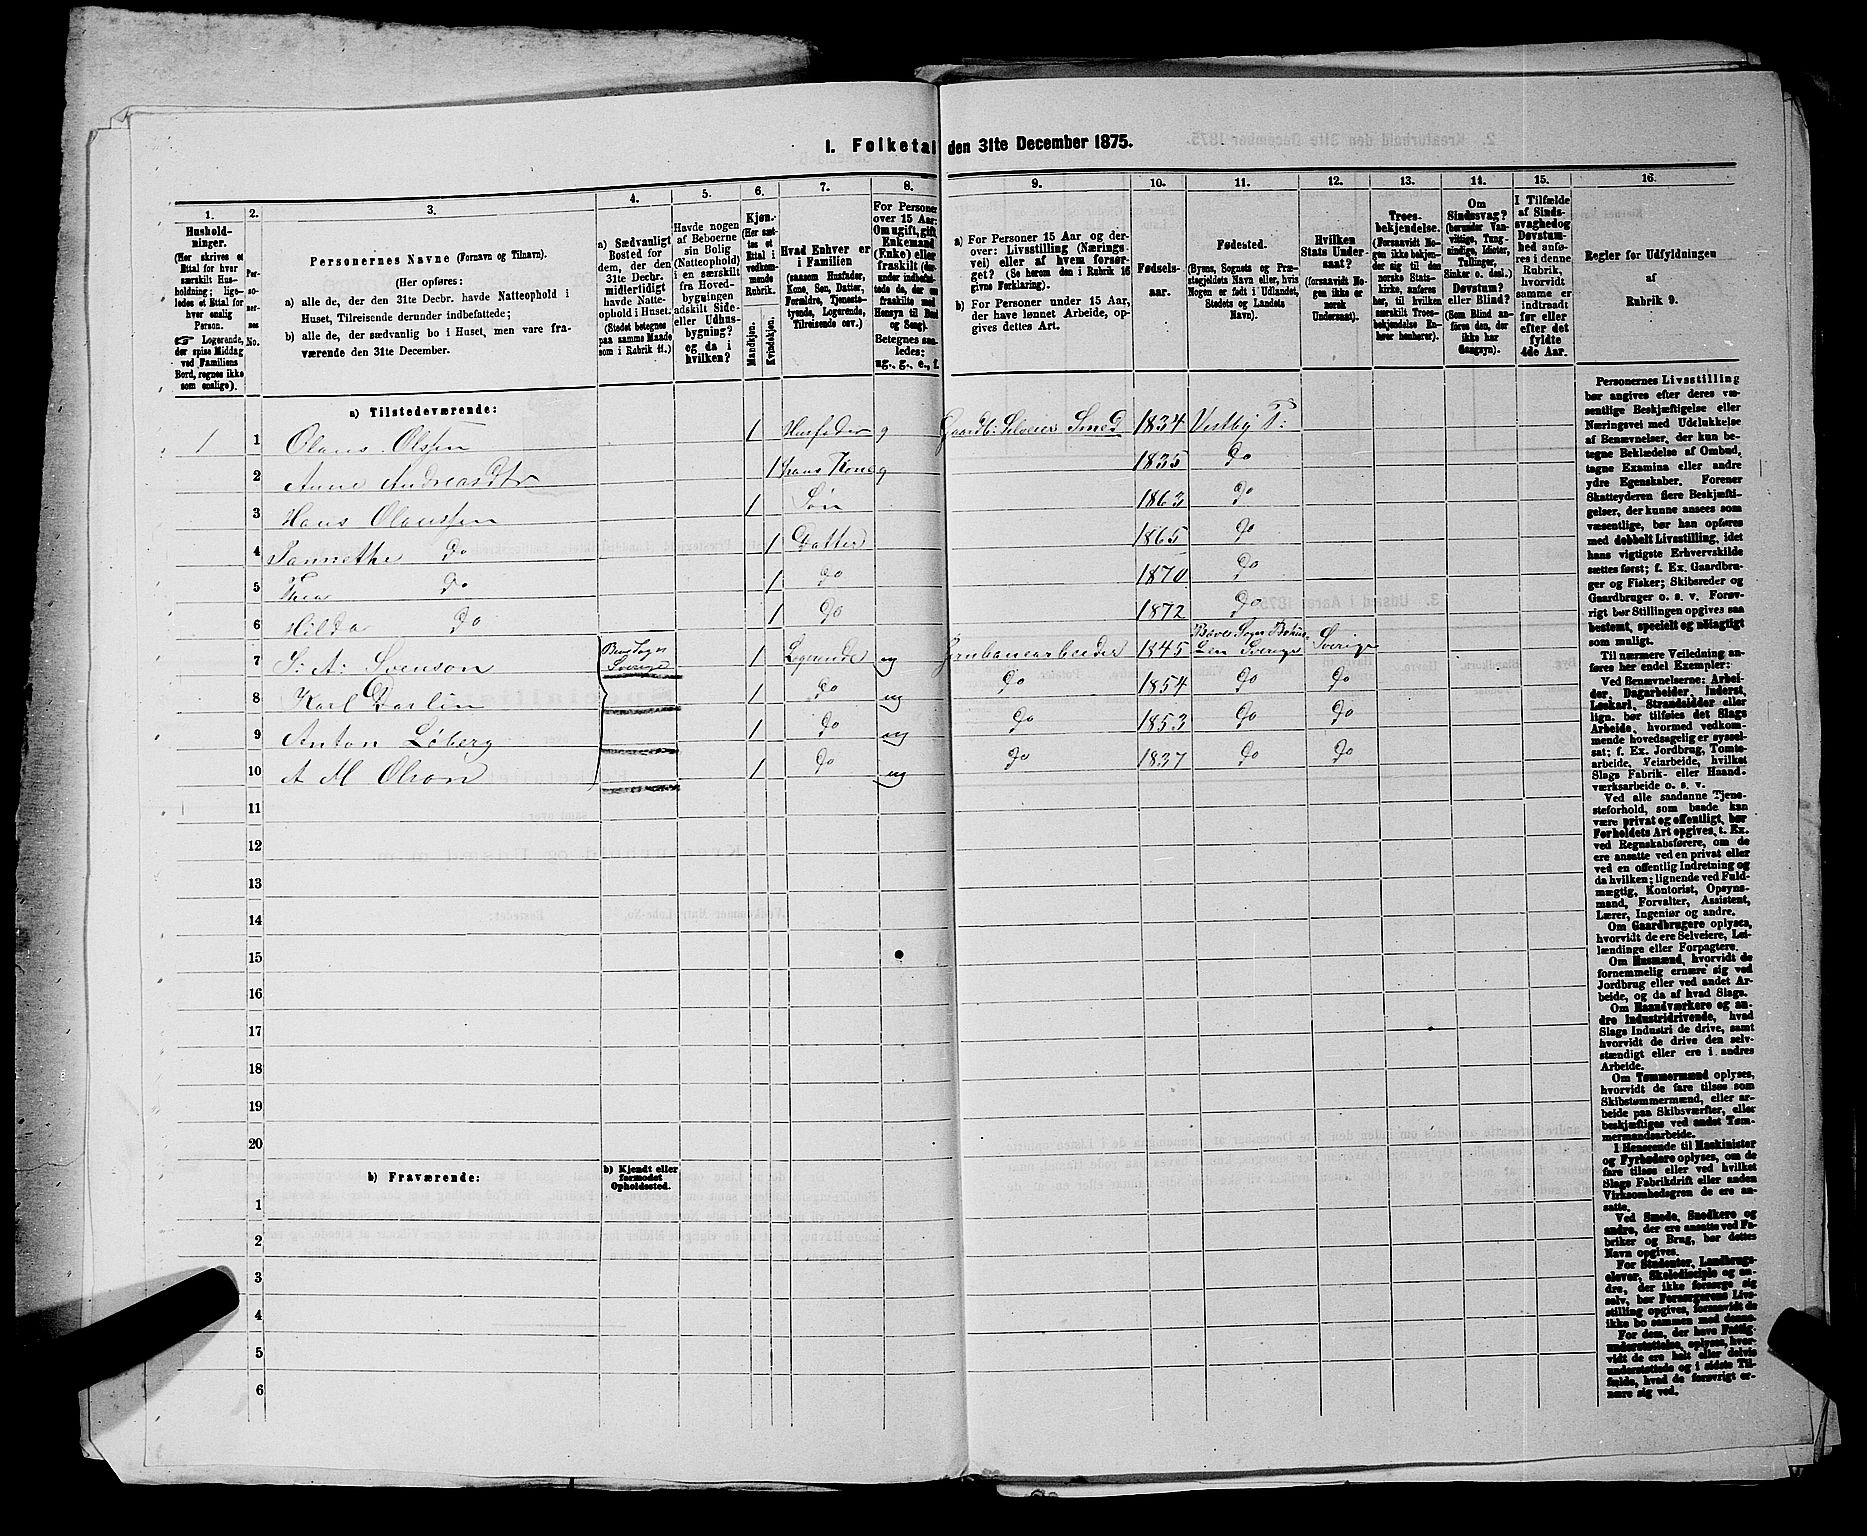 1. Folketal den 31te December 1875.
1. 2. 3. 4. 5. 6. 7. 8. 9. 10. 11. 12. 13. 14. 15. 16.
Hushold-
ninger.
(Her skrives et
Ettal for hver
særskilt Hus-
holdning; lige-
ledes et Ettal for
hver enslig
Person.
☞ Logerende,
der spise Middag
ved Familiens
Bord, regnes ikke
som enslige).
Per-
so-
ner-
nes
No.
Personernes Navne (Fornavn og Tilnavn).
(Her opføres:
a) alle de, der den 31te Decbr. havde Natteophold i
Huset, Tilreisende derunder indbefattede;
b) alle de, der sædvanlig bo i Huset, men vare fra-
værende den 31te December.
a) Sædvanligt
Bosted for
dem, der den
31te Decbr.
midlertidigt
havde Natte-
ophold i Huset.
(Stedet betegnes
paa samme Maade
som i Rubrik 11.)
Havde nogen
af Beboerne
sin Bolig
(Natteophold)
i en særskilt
fra Hoved-
bygningen
adskilt Side-
eller Udhus-
bygning?
og da i
hvilken?
Kjøn.
(Her sæt-
tes et
Ettal i
vedkom-
mende
Rubrik.
Mandkjøn.
Kvindekjøn.
Hvad Enhver er
i Familien
(saasom Husfader,
Kone, Søn, Datter,
Forældre, Tjeneste-
tyende, Logerende,
Tilreisende osv.)
For Personer
over 15 Aar:
Om ugift, gift,
Enkemand
(Enke) eller
fraskilt (der-
under indbefat-
tede de, der ere
fraskilte med
Hensyn til Bord
og Seng).
Betegnes saa-
ledes:
ug., g., e., f.
a) For Personer 15 Aar og der-
over: Livsstilling (Nærings-
vei) eller af hvem forsør-
get? (Se herom den i Rubrik 16
givne Forklaring).
b) For Personer under 15 Aar,
der have lønnet Arbeide, op-
gives dettes Art.
Fødsels-
aar.
Fødested.
(Byens, Sognets og Præ-
stegjeldets Navn eller, hvis
Nogen er født i Udlandet,
Stedets og Landets
Navn).
Hvilken
Stats Under-
saat?
(forsaavidt No-
gen ikke er
norsk
Undersaat).
Troes-
bekjendelse.
(Forsaavidt No-
gen ikke bekjen-
der sig til den
norske Stats-
kirke, anføres
her, til hvilken
særskilt Troes-
bekjendelse En-
hver henhører).
Om
Sindssvag?
(herunder Van-
vittige, Tung-
sindige, Idioter,
Tullinger,
Sinker o. desl.)
Døvstum?
eller Blind?
(Som Blind an-
føres den, der
ikke har
Gangsyn).
I Tilfælde
af Sinds-
svaghed og
Døvstum-
hed anfø-
res i denne
Rubrik,
hvorvidt
samme er
indtraadt
før eller
efter det
fyldte
4de Aar.
Regler for Udfyldningen
af
Rubrik 9.
a) Tilstedeværende:
1 1 Olaus Olssen 1 Husfader g Gaardb: Selveier Smed 1834 Vestby P:
2 Anne Andreasdtr 1 hans Kone g 1835 do
3 Hans Olaussen 1 Søn 1863 do
4 Jannethe do 1 Datter 1865 do
5 Thea do 1 do 1870 do
6 Hilda do 1 do 1872 do
7 J: A: Svenson Sverige 1 Logerende ug Jernbanearbeider 1845 Sogn Bohus Len Sverige Sverige
8 Karl Darlin 1 do ug do 1854 do do
9 Anton Löberg 1 do ug do 1853 do do
10 A M Olson 1 do ug do 1837 do do
11
12
13
14
15
16
17
18
19
20
b) Fraværende:
b) Kjendt eller
formodet
Opholdssted.
1
2
3
4
5
6
Personernes Livsstilling
bør angives efter deres væ-
sentlige Beskjæftigelse eller
Næringsvei med Udelukkelse
af Benævnelser, der kun be-
tegne Beklædelse af Ombud,
tagne Examina eller andre
ydre Egenskaber. Forener
Skatteyderen flere Beskjæfti-
gelser, der kunne ansees som
væsentlige, bør han opføres
med dobbelt Livsstilling, idet
hans vigtigste Erhvervskilde
sættes først; f. Ex. Gaardbru-
ger og Fisker; Skibsreder og
Gaardbruger o. s. v. Forøv-
rigt bør Stillingen opgives saa
bestemt, specielt og nøiagtigt
som muligt.
Til nærmere Veiledning an-
føres her endel Exempler:
Ved Benævnelserne: Arbei-
der, Dagarbeider, Inderst,
Løskarl, Strandsidder eller
lign. bør tilføies det Slags
Arbeide, hvormed vedkom-
mende hovedsagelig er syssel-
sat; f. Ex. Jordbrug, Tomte-
arbeide, Veiarbeide, hvilket
Slags Fabrik- eller Haand-
værksarbeide o. s. v.
Ved alle saadanne Tjene-
steforhold, som baade kan
være privat og offentligt, bør
Forholdets Art opgives, t. Ex.
ved Regnskabsførere, om de
ere ansatte ved en privat eller
ved en offentlig Indretning og
da hvilken; lignende ved Fuld-
mægtig, Kontorist, Opsyns-
mand, Forvalter, Assistent,
Lærer, Ingeniør og andre.
Om Gaardbrugere oplyses,
hvorvidt de ere Selveiere, Lei-
lændinge eller Forpagtere.
Om Husmænd, hvorvidt de
fornemmelig ernære sig ved
Jordbrug eller ved andet Ar-
beide, og da af hvad Slags.
Om Haandværkere og an-
dre Industridrivende, hvad
Slags Industri de drive, samt
hvorvidt de drive den selv-
stændigt eller ere i andres
Arbeide.
Om Tømmermænd oplyses,
hvorvidt de fare tilsøs som
Skibstømmermænd, eller ar-
beide paa Skibsværfter, eller
beskjæftiges ved andet Tøm-
mermandsarbeide.
I Henseende til Maskinister
og Fyrbødere oplyses, om de
fare tilsøs eller ved hvilket
Slags Fabrikdrift eller anden
Virksomhedsgren de ere an-
satte.
Ved Smede, Snedkere og
andre, der ere ansatte ved Fa-
briker og Brug, bør dettes
Navn opgives.
For Studenter, Landbrugs-
elever, Skoledisciple og an-
dre, der ikke forsørge sig
selv, bør Forsørgerens Livs-
stilling opgives, forsaavidt de
ikke bo sammen med denne.
For dem, der have Fattig-
understøttelse, oplyses, hvor-
vidt de ere helt eller delvis
understøttede og i sidste Til-
fælde, hvad de forøvrigt er-
nære sig ved.